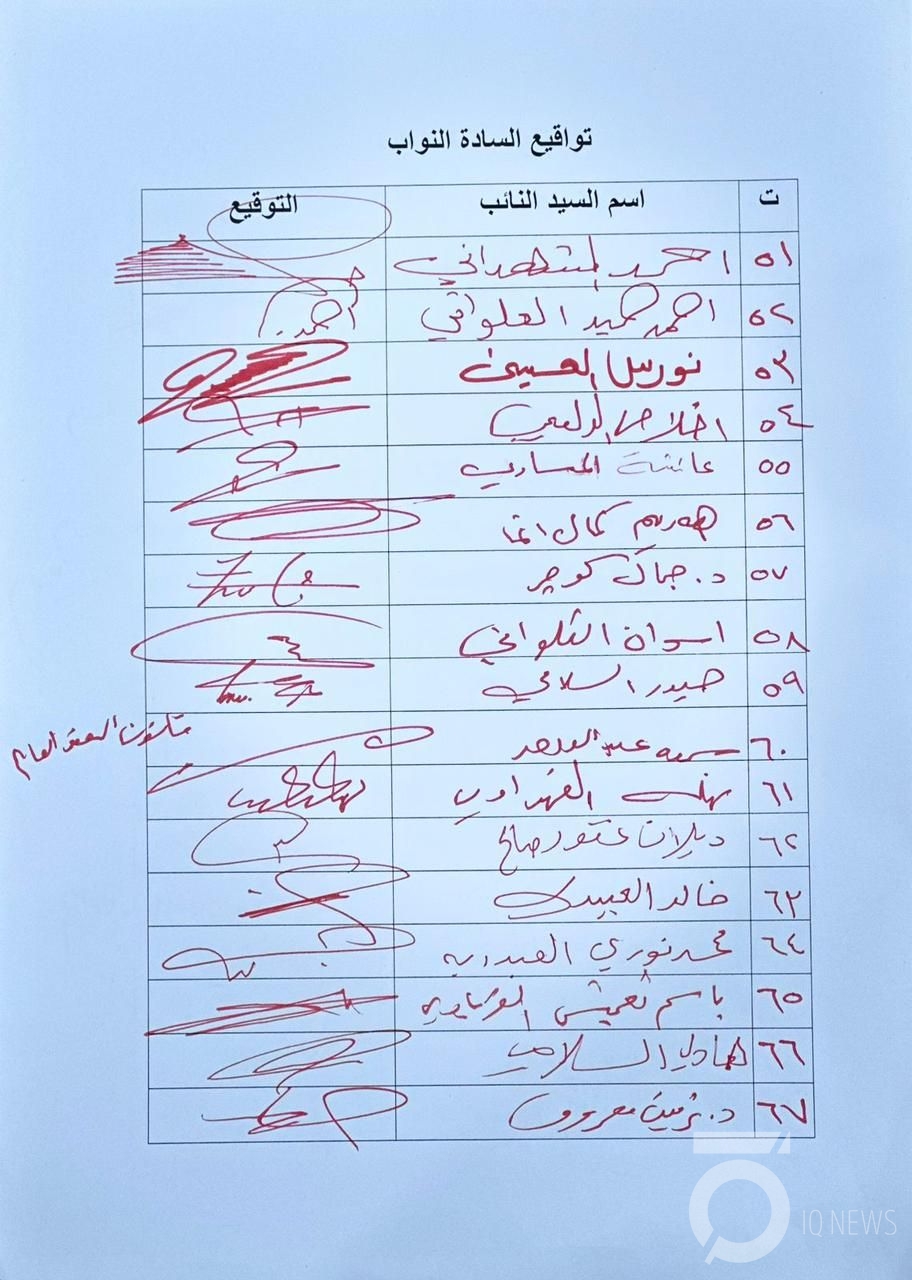 تواقيع السادة النواب
ت اسم السيد النائب التوقيع
٥١ احمد المشهداني
٥٢ احمد حميد العلواني احمد
٥٣ نورس العيسى
٥٤ اخلاص الدليمي
٥٥ عائشة المساري
٥٦ هه ريم كمال اغا
٥٧ د. جمال كوجر
٥٨ اسوان الكلداني
٥٩ حيدر السلامي
٦٠ عبد
٦١ نهلة الفهداوي
٦٢ ديلان غفور صالح
٦٣ خالد العبيدي
٦٤ محمد نوري
٦٥ باسم نغيمش
٦٦ هادي السلامي
٦٧ د. نرمين معروف
قانون العفو العام
IQ NEWS